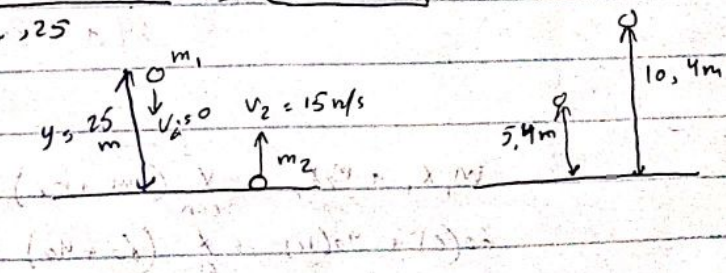 ,25
m₁
y = 25 m
Vᵢ = 0
V₂ = 15 m/s
m₂
5,4m
10,4m